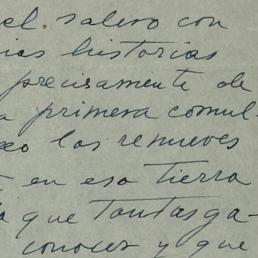 el salero con
ias historias
precisamente de
a primera comul-
eo los renueves
en esa tierra
a que Tantas ga-
conocer y que